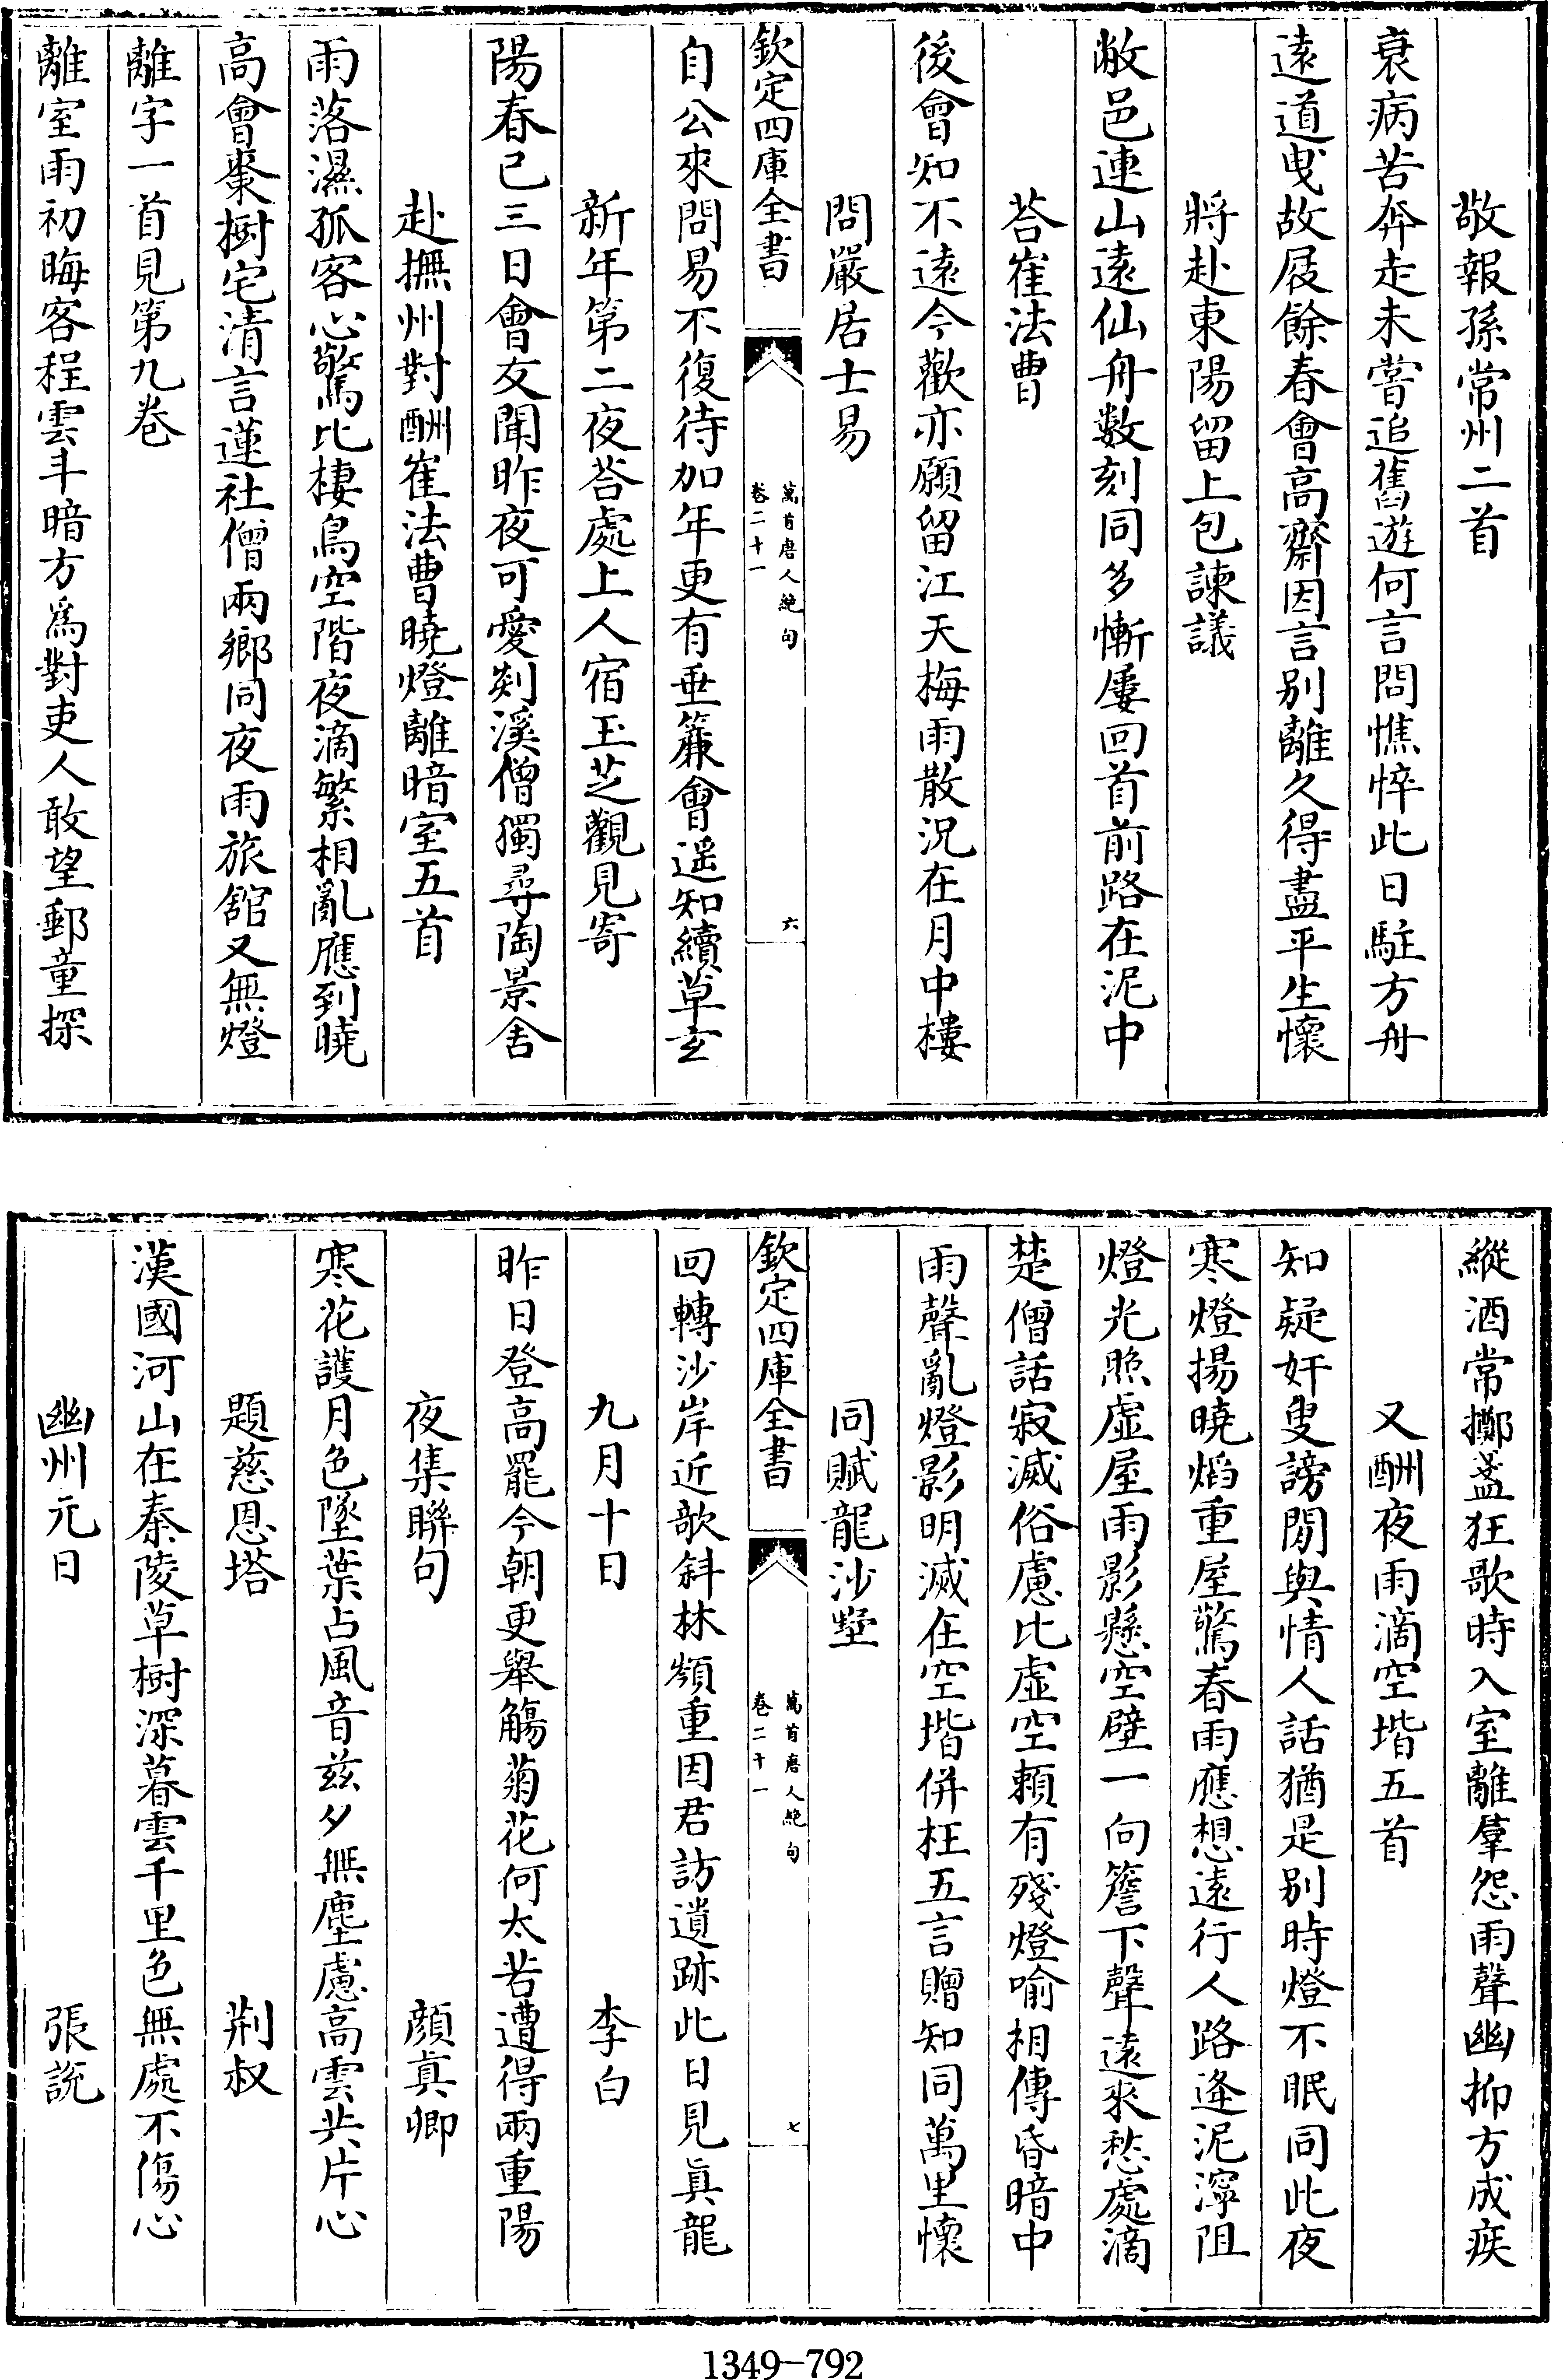 敬報孫常州二首
衰病苦奔走未嘗追舊遊何言問憔悴此日駐方舟
遠道曳故屐餘春會高齋因言别離久得盡平生懷
將赴東陽留上包諫議
敝邑連山遠仙舟數刻同多慚屢回首前路在泥中
荅崔法曹
後會知不遠今歡亦願留江天梅雨散況在月中樓
問嚴居士易
欽定四庫全書
萬首唐人絶句
卷二十一
六
自公來問易不復待加年更有垂簾會遥知續草玄
新年第二夜荅處上人宿玉芝觀見寄
陽春已三日會友聞昨夜可愛剡溪僧獨尋陶景舍
赴撫州對酬崔法曹曉燈離暗室五首
雨落濕孤客心驚比棲鳥空階夜滴繁相亂應到曉
高會棗樹宅清言蓮社僧兩鄉同夜雨旅舘又無燈
離字一首見第九卷
離室雨初晦客程雲斗暗方爲對吏人敢望郵童探
縱酒常擲盞狂歌時入室離羣怨雨聲幽抑方成疾
又酬夜雨滴空堦五首
知疑奸叟謗閒與情人話猶是别時燈不眠同此夜
寒燈揚曉熖重屋驚春雨應想遠行人路逢泥濘阻
燈光照虚屋雨影懸空壁一向簷下聲遠來愁處滴
楚僧話寂滅俗慮比虚空頼有殘燈喻相傳昏暗中
雨聲亂燈影明滅在空堦併枉五言贈知同萬里懷
同賦龍沙墅
欽定四庫全書
萬首唐人絶句
卷二十一
七
回轉沙岸近欹斜林嶺重因君訪遺跡此日見真龍
九月十日 李白
昨日登高罷今朝更舉觴菊花何太苦遭得兩重陽
夜集聯句 顔真卿
寒花護月色墜葉占風音兹夕無塵慮高雲共片心
題慈恩塔 荆叔
漢國河山在秦陵草樹深暮雲千里色無處不傷心
幽州元日 張說
1349-792